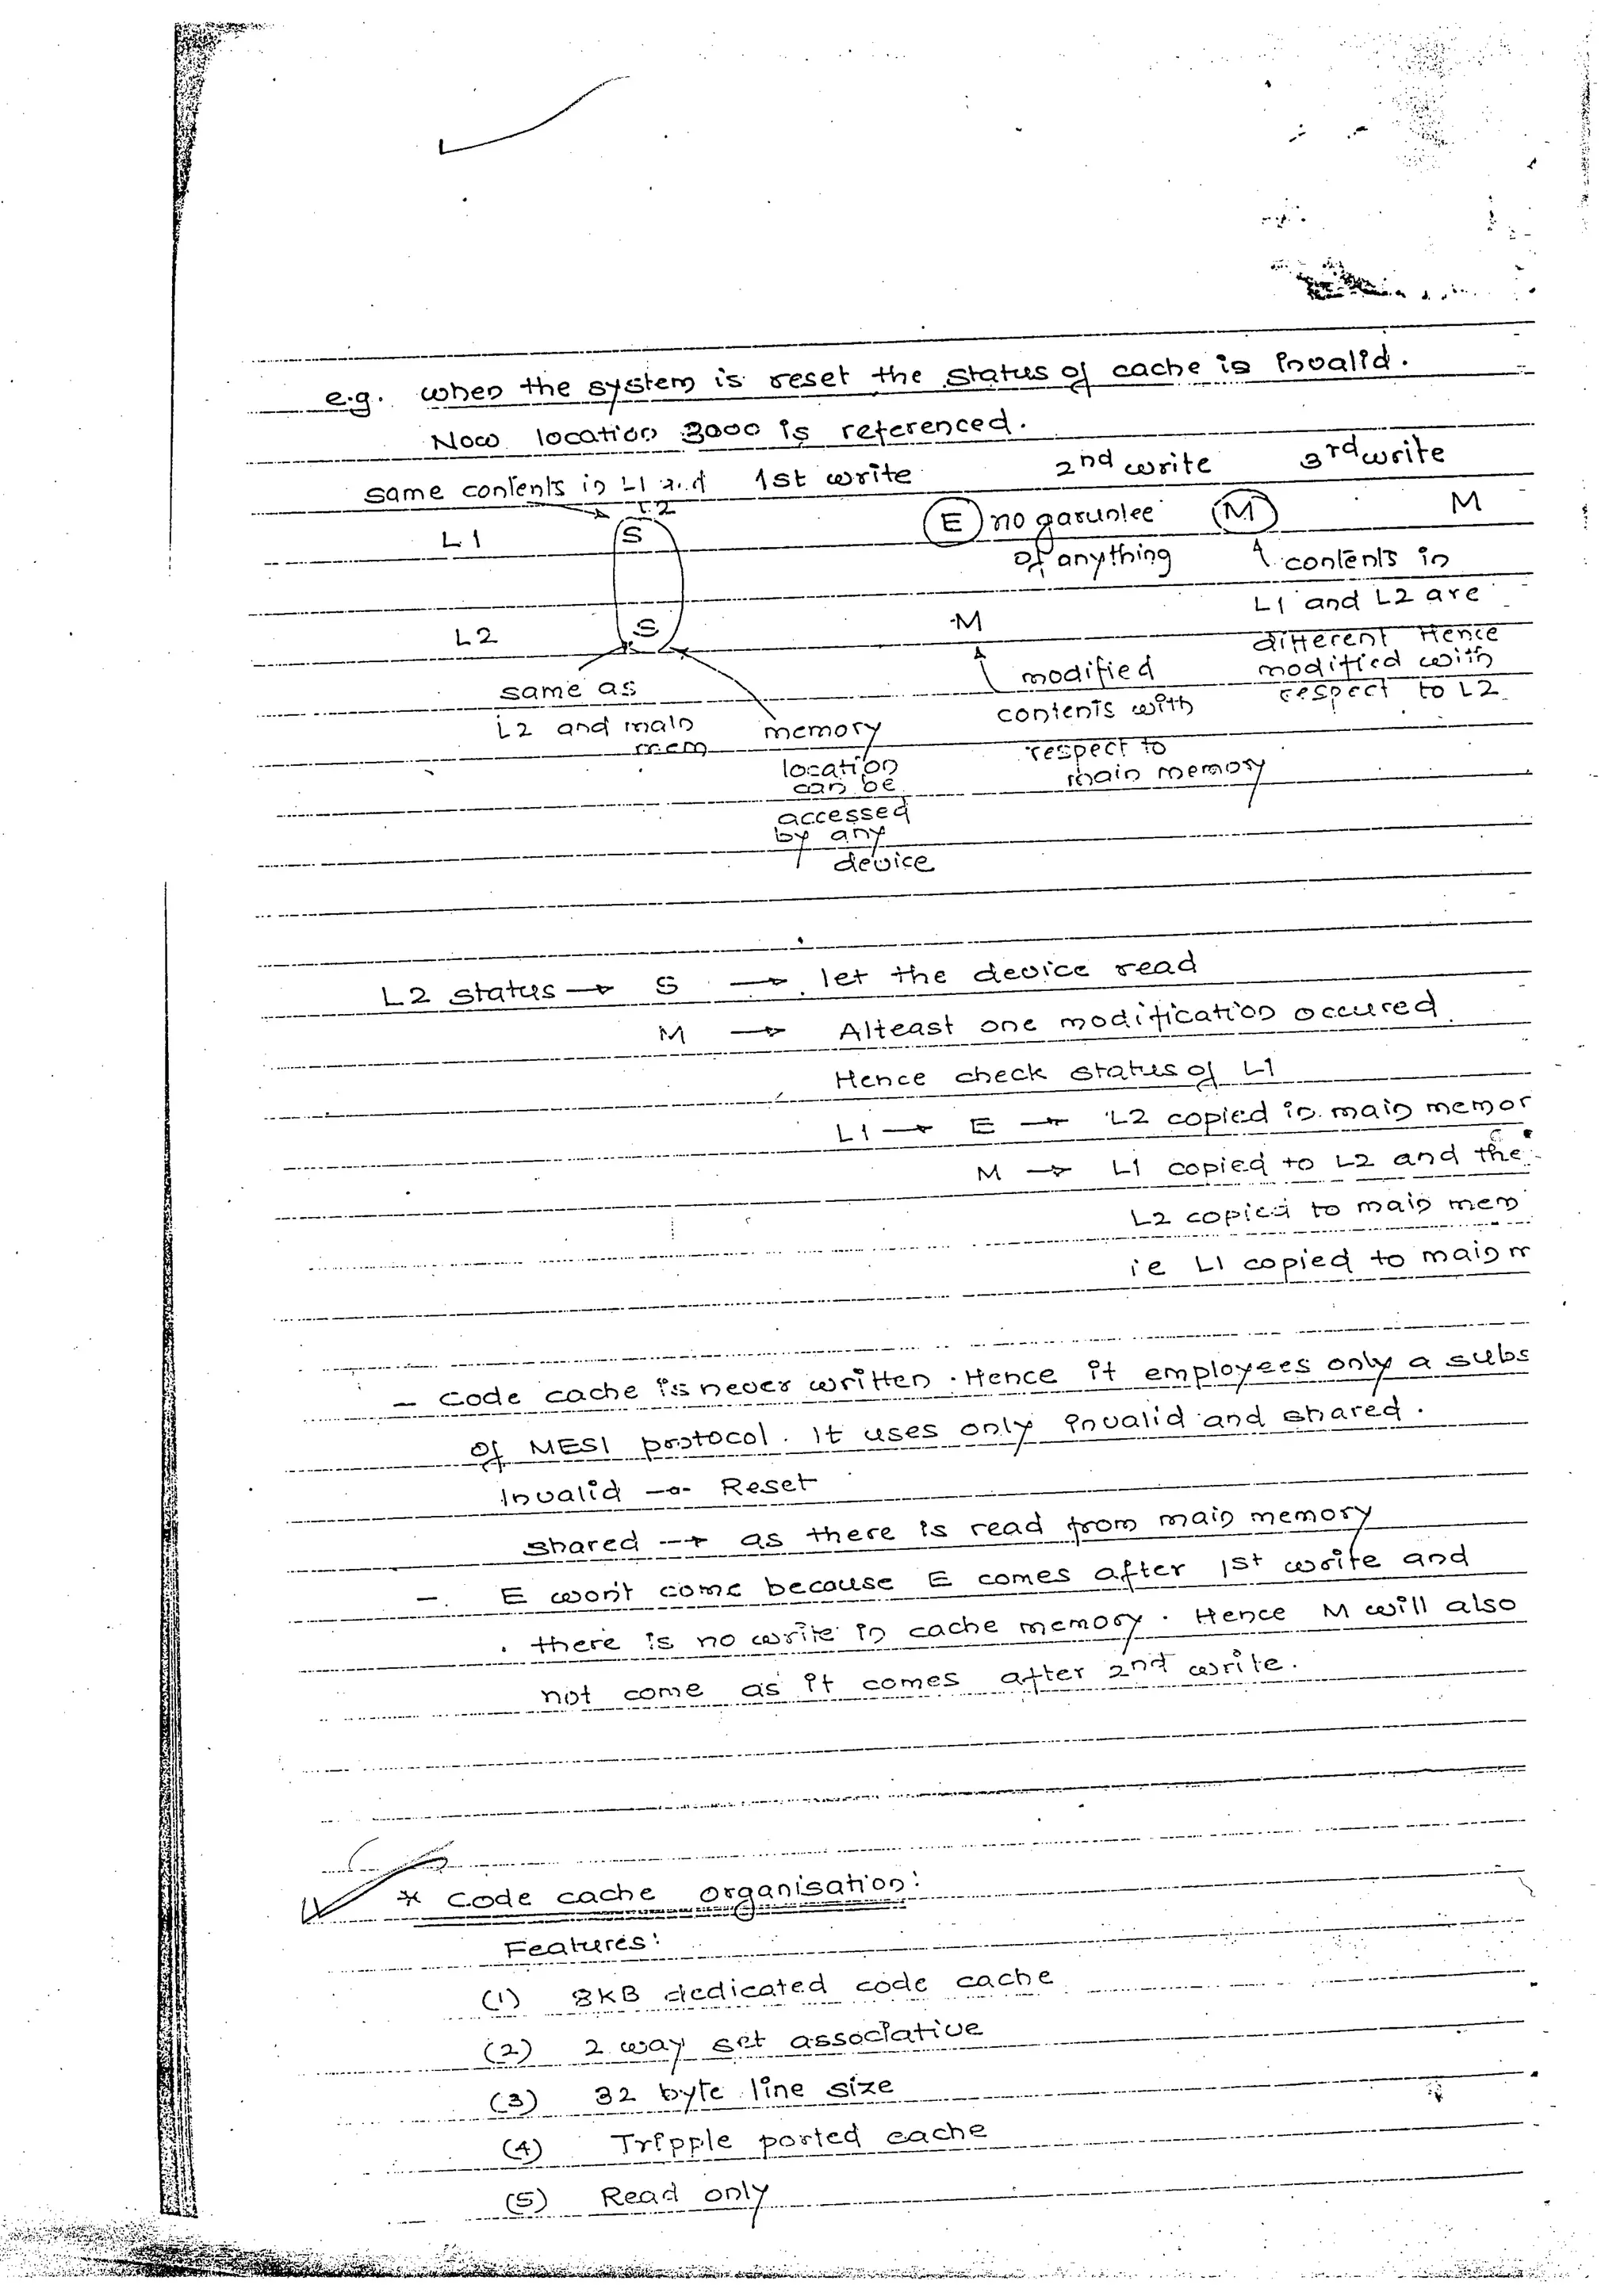 e.g. when the system is reset the status of cache is invalid.
Now location 3000 is referenced.
same contents in L1 and 1st write 2nd write 3rd write
L2
L1 S E no garuntee M M
of anything contents in
L1 and L2 are
L2 S M different Hence
same as modified modified with
L2 and main memory contents with respect to L2
mem respect to
location main memory
can be
accessed
by any
device
L2 status → S → let the device read
M → Alteast one modification occured.
Hence check status of L1
L1 → E → L2 copied in main memor
M → L1 copied to L2 and the
L2 copied to main mem
ie L1 copied to main m
- code cache is never written. Hence it employees only a subs
of MESI protocol. It uses only invalid and shared.
Invalid → Reset
shared → as there is read from main memory
- E won't come because E comes after 1st write and
there is no write in cache memory. Hence M will also
not come as it comes after 2nd write.
* code cache organisation:
Features:
(1) 8KB dedicated code cache
(2) 2 way set associative
(3) 32 byte line size
(4) Tripple ported cache
(5) Read only